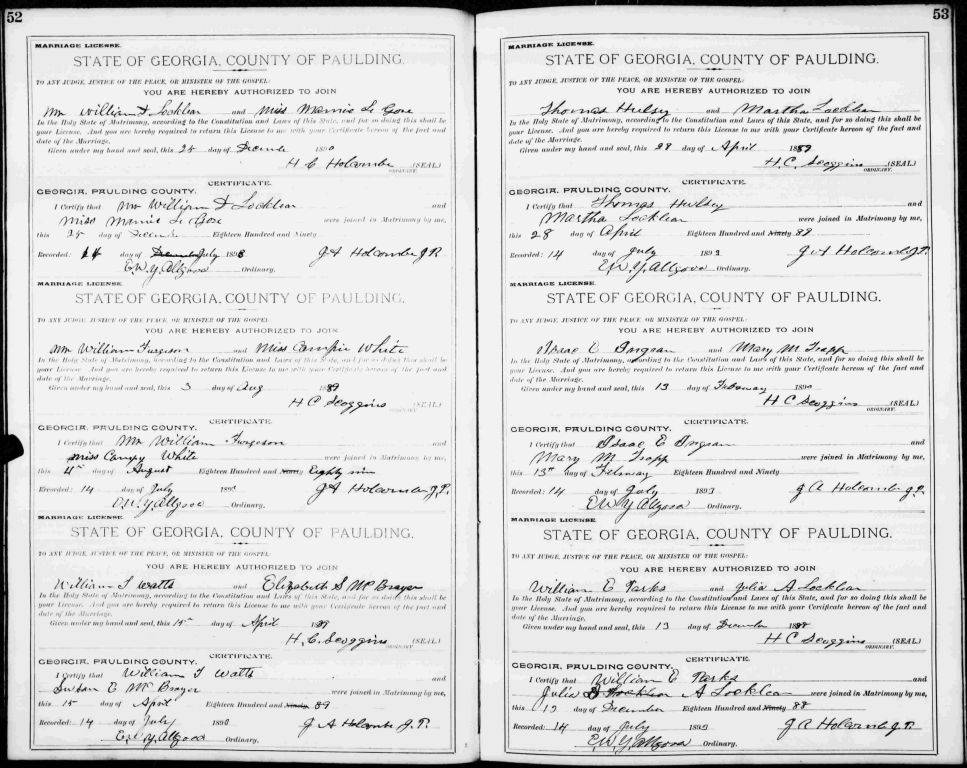 52
MARRIAGE LICENSE.
STATE OF GEORGIA, COUNTY OF PAULDING.
TO ANY JUDGE, JUSTICE OF THE PEACE, OR MINISTER OF THE GOSPEL:
YOU ARE HEREBY AUTHORIZED TO JOIN
Mr William Locklear and Miss Mannie Le Gore
In the Holy State of Matrimony, according to the Constitution and Laws of this State, and for so doing this shall be
your License. And you are hereby required to return this License to me with your Certificate hereon of the fact and
date of the Marriage.
Given under my hand and seal, this 25 day of 1890
H C Holcombe (SEAL)
ORDINARY.
CERTIFICATE.
GEORGIA, PAULDING COUNTY.
I Certify that Mr William Locklear and
Miss Mannie Le Gore were joined in Matrimony by me,
this 25 day of Eighteen Hundred and Ninety
Recorded: 14 day of July 1893 J A Holcombe J P
E.W.Y. Allgood Ordinary.
MARRIAGE LICENSE.
STATE OF GEORGIA, COUNTY OF PAULDING.
TO ANY JUDGE, JUSTICE OF THE PEACE, OR MINISTER OF THE GOSPEL:
YOU ARE HEREBY AUTHORIZED TO JOIN
Mr William Furgeson and Miss White
In the Holy State of Matrimony, according to the Constitution and Laws of this State, and for so doing this shall be
your License. And you are hereby required to return this License to me with your Certificate hereon of the fact and
date of the Marriage.
Given under my hand and seal, this 3 day of Aug 1889
H C Scoggins (SEAL)
ORDINARY.
CERTIFICATE.
GEORGIA, PAULDING COUNTY.
I Certify that Mr William Furgeson and
Miss Campy White were joined in Matrimony by me,
this 4th day of August Eighteen Hundred and Ninety Eighty nine
Recorded: 14 day of July 189 J A Holcombe J.P.
E.W.Y. Allgood Ordinary.
MARRIAGE LICENSE.
STATE OF GEORGIA, COUNTY OF PAULDING.
TO ANY JUDGE, JUSTICE OF THE PEACE, OR MINISTER OF THE GOSPEL:
YOU ARE HEREBY AUTHORIZED TO JOIN
William T Watts and Elizabeth S McBrayer
In the Holy State of Matrimony, according to the Constitution and Laws of this State, and for so doing this shall be
your License. And you are hereby required to return this License to me with your Certificate hereon of the fact and
date of the Marriage.
Given under my hand and seal, this 15 day of April 1889
H. C. Scoggins (SEAL)
ORDINARY.
CERTIFICATE.
GEORGIA, PAULDING COUNTY.
I Certify that William T Watts and
Susan E McBrayer were joined in Matrimony by me,
this 15 day of April Eighteen Hundred and Ninety 89
Recorded: 14 day of July 189 J A Holcombe J.P.
E.W.Y. Allgood Ordinary.
53
MARRIAGE LICENSE.
STATE OF GEORGIA, COUNTY OF PAULDING.
TO ANY JUDGE, JUSTICE OF THE PEACE, OR MINISTER OF THE GOSPEL:
YOU ARE HEREBY AUTHORIZED TO JOIN
Thomas Hulsey and Martha Locklear
In the Holy State of Matrimony, according to the Constitution and Laws of this State, and for so doing this shall be
your License. And you are hereby required to return this License to me with your Certificate hereon of the fact and
date of the Marriage.
Given under my hand and seal, this 28 day of April 1889
H. C. Scoggins (SEAL)
ORDINARY.
CERTIFICATE.
GEORGIA, PAULDING COUNTY.
I Certify that Thomas Hulsey and
Martha Locklear were joined in Matrimony by me,
this 28 day of April Eighteen Hundred and Ninety 89
Recorded: 14 day of July 1893 J A Holcombe J.P.
E.W.Y. Allgood Ordinary.
MARRIAGE LICENSE.
STATE OF GEORGIA, COUNTY OF PAULDING.
TO ANY JUDGE, JUSTICE OF THE PEACE, OR MINISTER OF THE GOSPEL:
YOU ARE HEREBY AUTHORIZED TO JOIN
Isaac E Ingram and Mary M Trapp
In the Holy State of Matrimony, according to the Constitution and Laws of this State, and for so doing this shall be
your License. And you are hereby required to return this License to me with your Certificate hereon of the fact and
date of the Marriage.
Given under my hand and seal, this 13 day of February 1890
H C Scoggins (SEAL)
ORDINARY.
CERTIFICATE.
GEORGIA, PAULDING COUNTY.
I Certify that Isaac E Ingram and
Mary M Trapp were joined in Matrimony by me,
this 13th day of February Eighteen Hundred and Ninety
Recorded: 14 day of July 1893 J A Holcombe J.P.
E.W.Y. Allgood Ordinary.
MARRIAGE LICENSE.
STATE OF GEORGIA, COUNTY OF PAULDING.
TO ANY JUDGE, JUSTICE OF THE PEACE, OR MINISTER OF THE GOSPEL:
YOU ARE HEREBY AUTHORIZED TO JOIN
William E Parks and Julia A Locklear
In the Holy State of Matrimony, according to the Constitution and Laws of this State, and for so doing this shall be
your License. And you are hereby required to return this License to me with your Certificate hereon of the fact and
date of the Marriage.
Given under my hand and seal, this 13 day of December 1888
H C Scoggins (SEAL)
ORDINARY.
CERTIFICATE.
GEORGIA, PAULDING COUNTY.
I Certify that William E Parks and
Julia A Locklear were joined in Matrimony by me,
this 13 day of December Eighteen Hundred and Ninety 88
Recorded: 14 day of July 1893 J A Holcombe J.P.
E.W.Y. Allgood Ordinary.